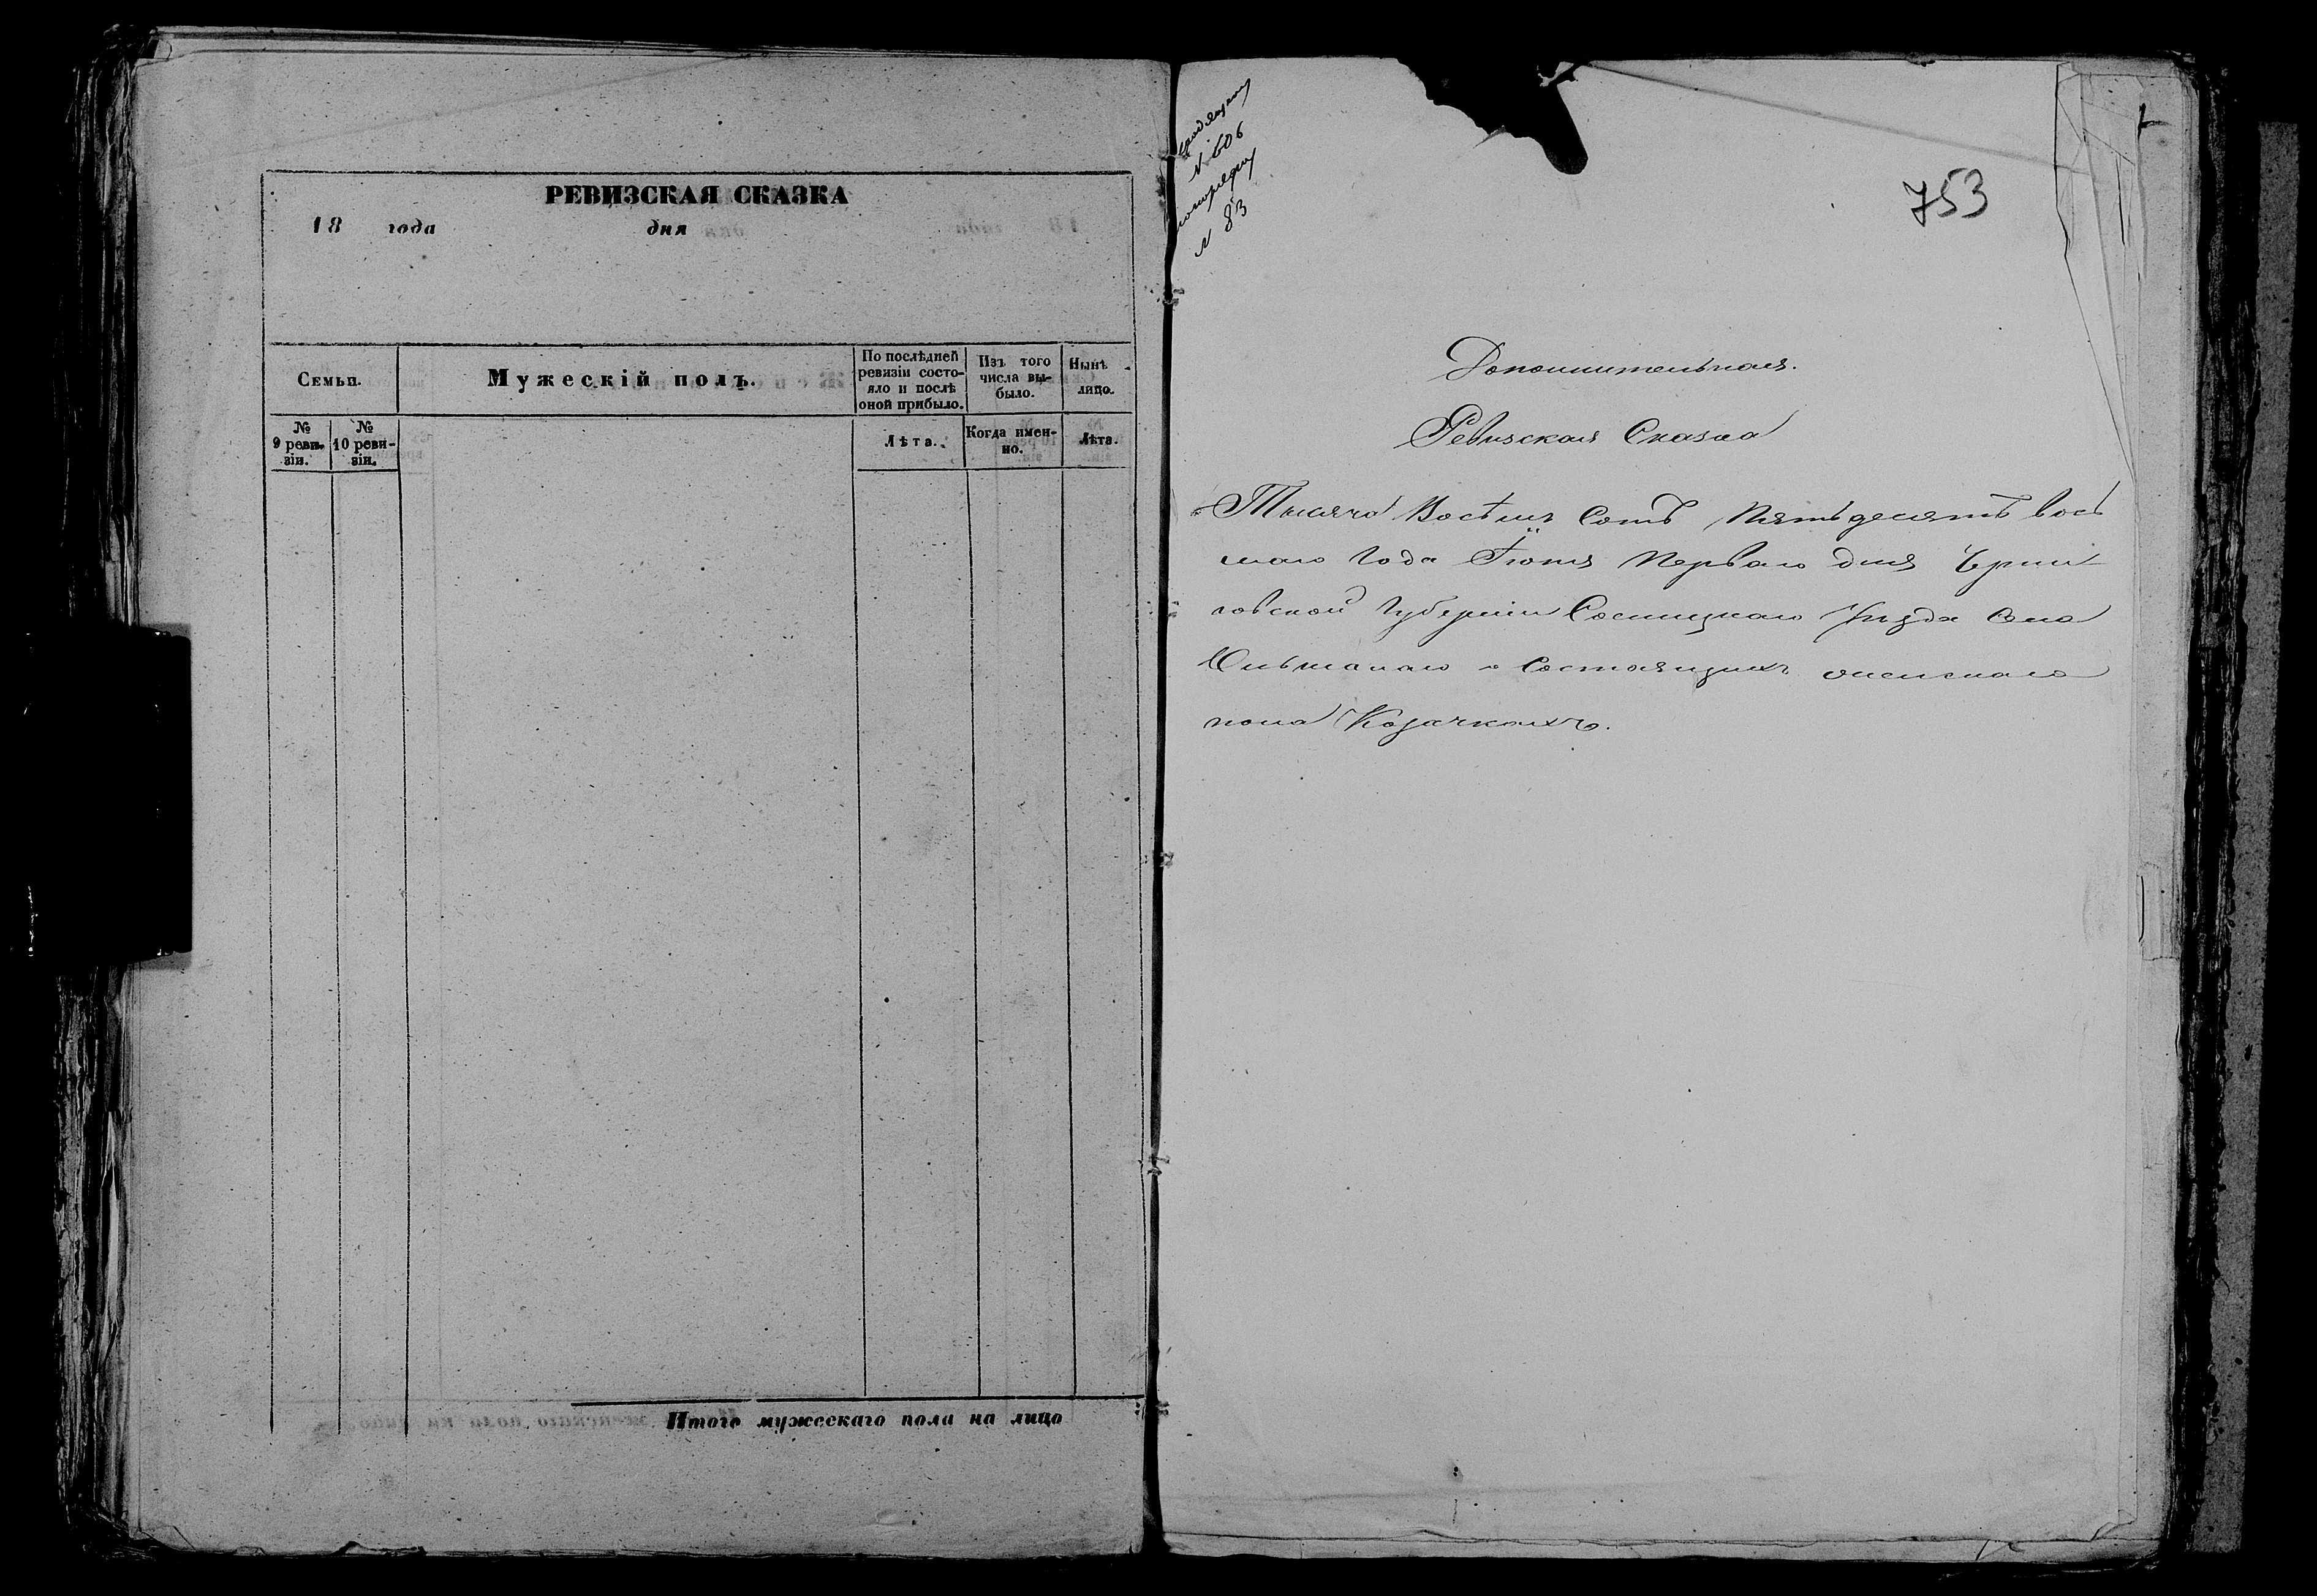 РЕВИЗСКАЯ СКАЗКА
18 года дня
Семьи.
Мужескій полъ.
По послѣдней
ревизіи состо-
яло и послѣ
оной прибыло.
Изъ того
числа вы-
было.
Нынѣ
лицо.
№
9 реви-
зіи.
№
10 реви-
зіи.
Лѣта.
Когда имен-
но.
Лѣта.
Итого мужескаго пола на лицо
№ 606
№ 83
753
Дополнительная.
Ревизская Сказка
Тысяча Восѣмъ Сотъ Пятьдесятъ вось
маго Года Іюня Перваго дня Черни-
говской Губерніи Сосницкаго Уѣзда Села
о Состоящихъ женскаго
пола Козачкахъ.